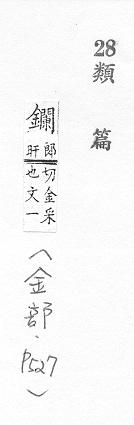 28
類篇
鑭郎旰切金采也文一
(金部·P527)